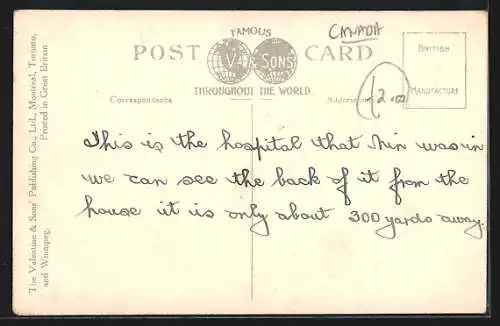 FAMOUS
CANADA
POST CARD
V. & SONS
BRITISH
MANUFACTURE
THROUGHOUT THE WORLD
Correspondence
Address
12.00
This is the hospital that was in
we can see the back of it from the
house it is only about 300 yards away.
The Valentine & Sons' Publishing Co., Ltd., Montreal, Toronto,
and Winnipeg.
Printed in Great Britain